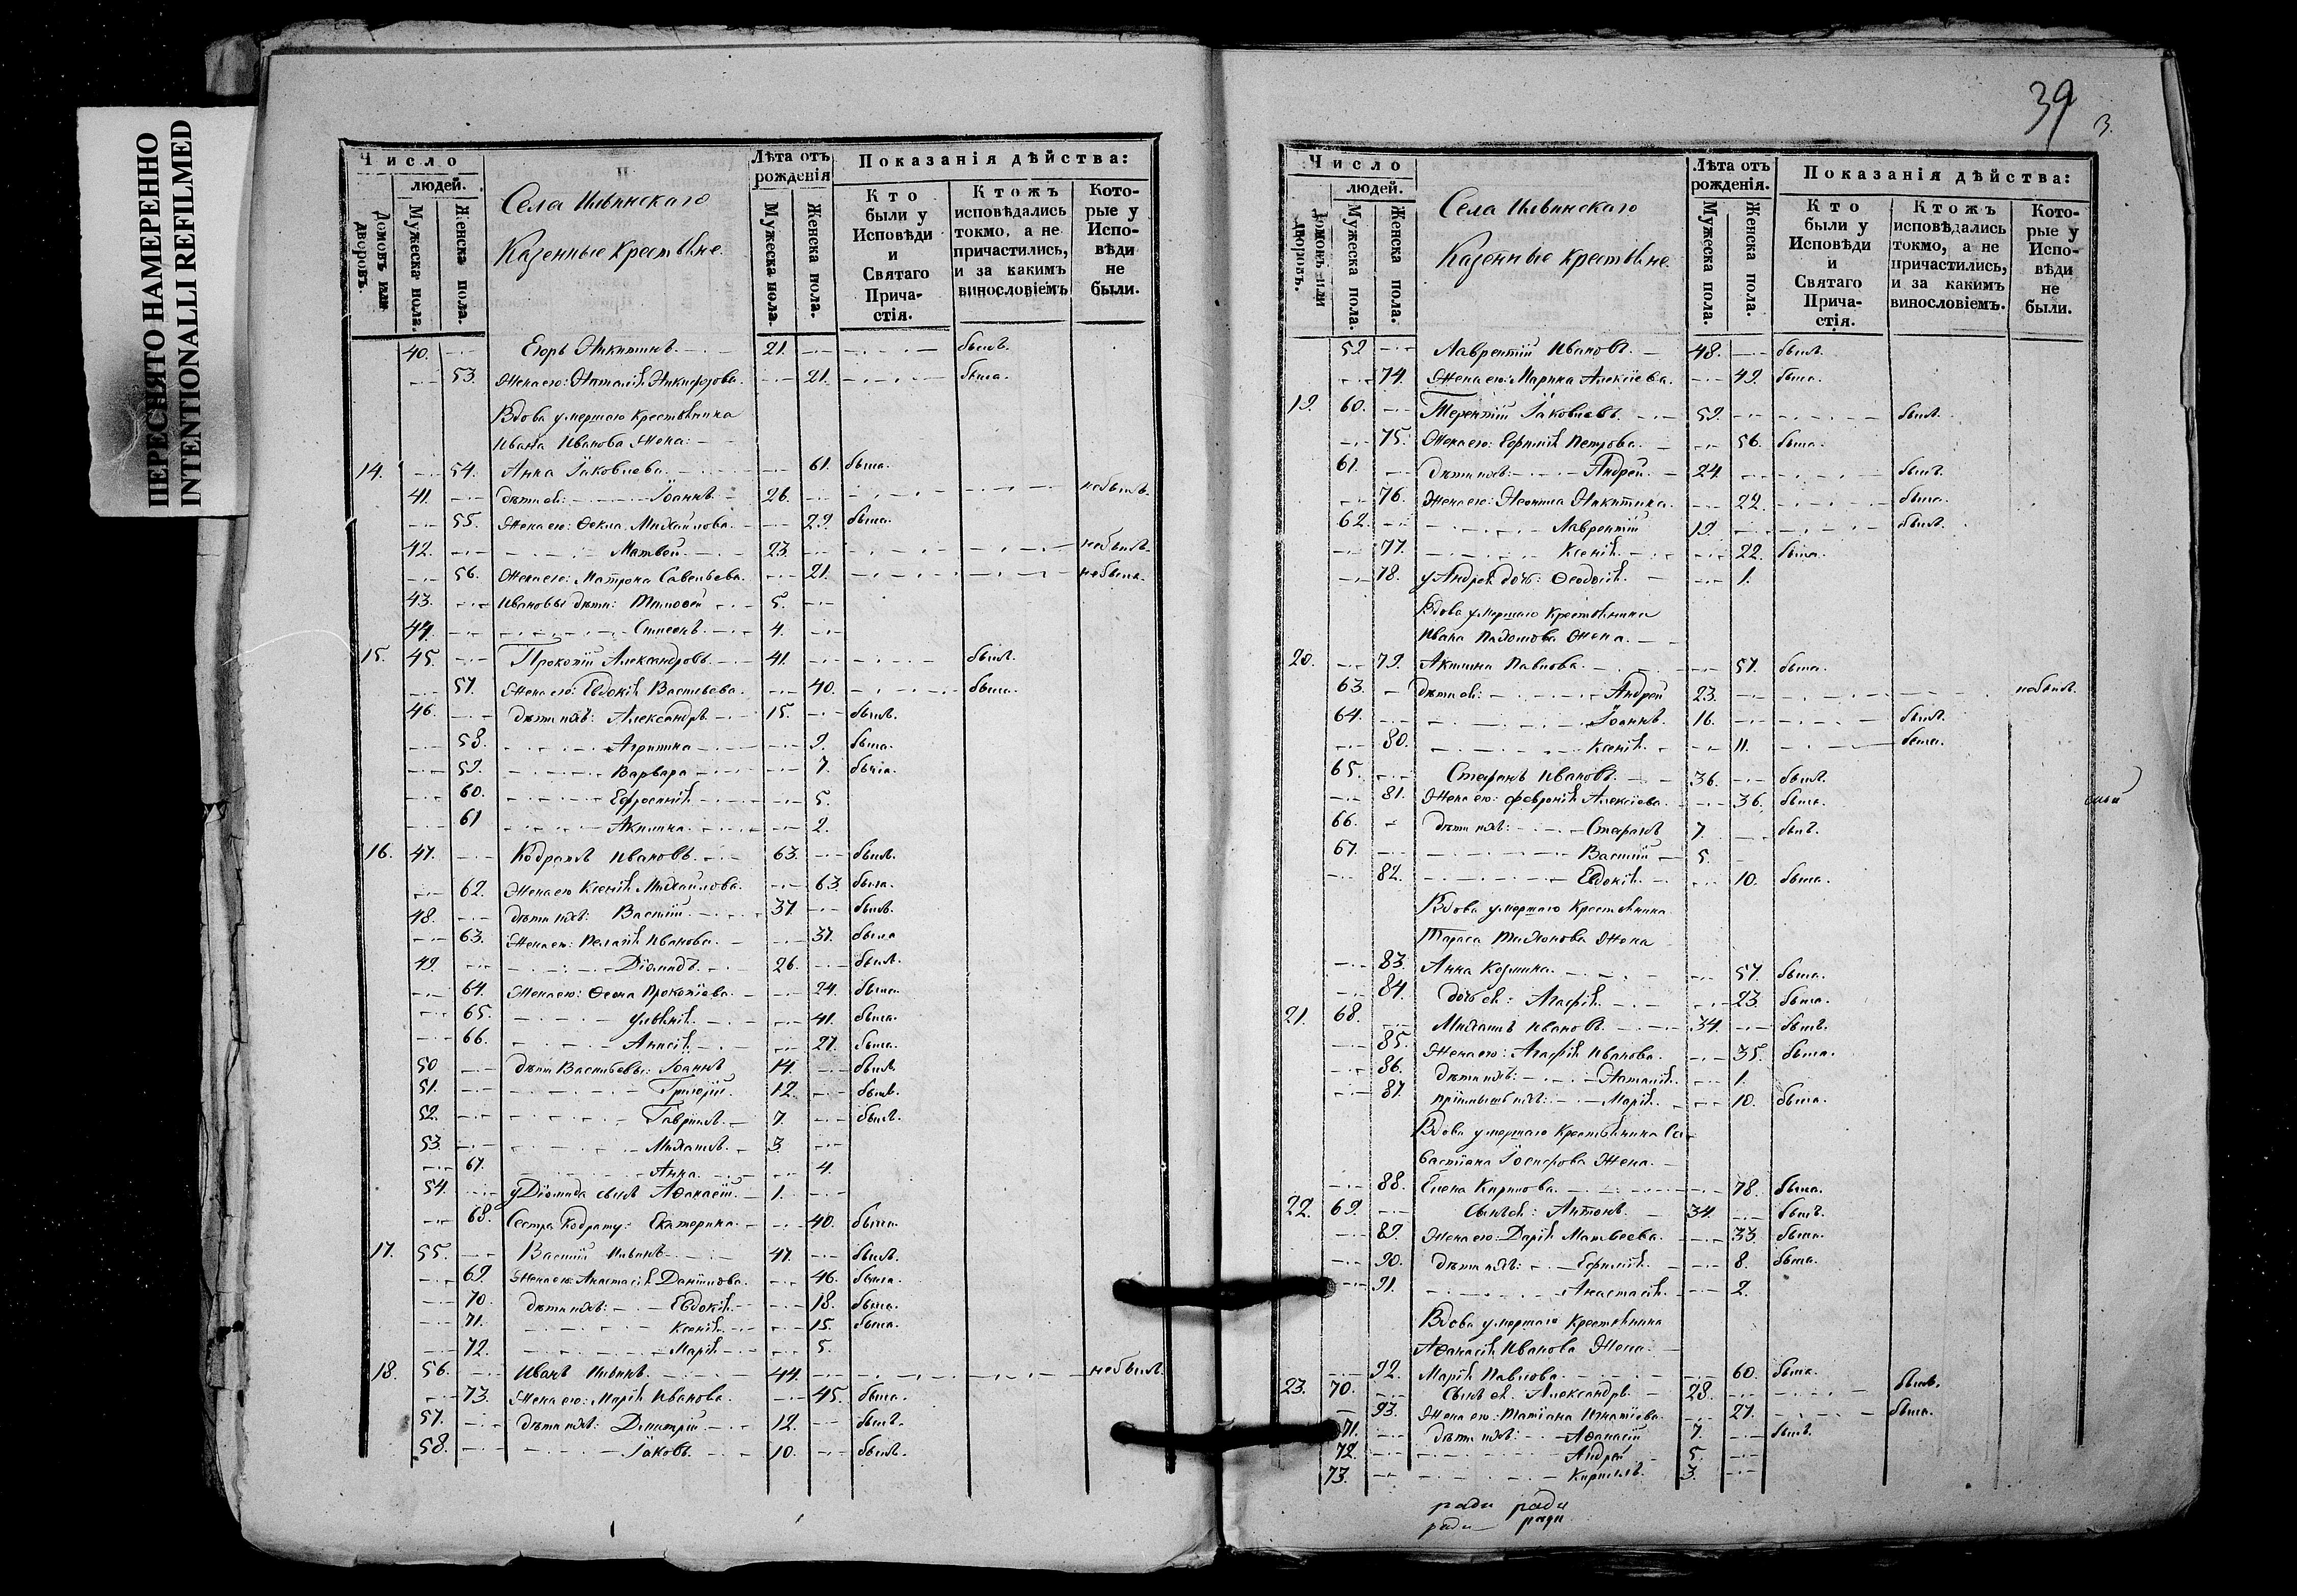 ПЕРЕСНЯТО НАМЕРЕННО
INTENTIONALLI REFILMED
Число
людей.
Домовъ или дворовъ.
Мужеска пола.
Женска пола.
Села Ильинскаго
Казенные крестьяне.
Лѣта отъ рожденія
Мужеска пола.
Женска пола.
Показанія дѣйства:
Кто были у Исповѣди и Святаго Прича-стія.
Ктожъ исповѣдались токмо, а не причастились, и за какимъ винословіемъ
Кото-рые у Испо-вѣди не были.
40. Егоръ Никитинъ. 21. былъ.
53. Жена его: Наталія Никифорова. 21. была.
Вдова умершаго крестьянина
Ивана Иванова жена:
14. 54. Анна Іаковлева. 61. была.
41. дѣти ея: Іоаннъ 26. небылъ.
55. Жена его: Ѳекла Михаилова. 29. была.
42. Матвей. 23. небылъ.
56. Жена его: Матрона Савельева. 21. небыла.
43. Ивановы дѣти: Тимоѳей 5.
44. Симеонъ. 4.
15. 45. Прокопій Александровъ. 41. былъ.
57. Жена его: Евдокія Васильева. 40. была.
46. дѣти ихъ: Александръ 15. былъ.
58. Агрипина 9. была.
59. Варвара 7. была.
60. Ефросинія 5.
61 Акилина. 2.
16. 47. Кодратъ Ивановъ. 63. былъ.
62. Жена его Ксенія Михаилова. 63. была.
48. дѣти ихъ: Василій 37. былъ.
63. Жена его: Пелагія Иванова. 37. была
49. Діомидъ. 26. былъ.
64. Жена его: Ѳекла Прокопіева. 24. была.
65. Уліянія. 41. была.
66. Анисія. 27. была.
50 дѣти Васильевы: Іоаннъ 14. былъ.
51 Григорій. 12. былъ.
52. Гавріилъ. 7. былъ.
53. Михаилъ. 3.
67. Анна. 4.
54. у Діомида сынъ Аѳанасій. 1.
68. Сестра Кодрату: Екатерина. 40. была.
17. 55. Василій Ильинъ 47. былъ.
69. Жена его: Анастасія Даніилова. 46. была.
70. дѣти ихъ: Евдокія. 18. была.
71. Ксенія. 15. была.
72. Марія. 5.
18. 56. Иванъ Ильинъ. 44. небылъ.
73. Жена его: Марія Иванова. 45. была.
57. дѣти ихъ: Димитрій 12. былъ.
58. Іаковъ. 10. былъ.
39
3.
Число
людей.
Домовъ или дворовъ.
Мужеска пола.
Женска пола.
Села Ильинскаго
Казенные крестьяне.
Лѣта отъ рожденія.
Мужеска пола.
Женска пола.
Показанія дѣйства:
Кто были у Исповѣди и Святаго Прича-стія.
Ктожъ исповѣдались токмо, а не причастились, и за какимъ винословіемъ.
Кото-рые у Испо-вѣди не были.
59 Лаврентій Ивановъ. 48. былъ.
74. Жена его: Марина Алексіева. 49. была.
19. 60. Терентій Іаковлевъ. 59. былъ.
75. Жена его: Ефимія Петрова. 56. была.
61. дѣти ихъ: Андрей. 24. былъ.
76. Жена его: Неонила Никитина. 22. была.
62. Лаврентій 19. былъ.
77. Ксенія. 22. была.
78. у Андрея дочь: Ѳеодосія. 1.
Вдова умершаго крестьянина
Ивана Пахомова жена.
20. 79. Акилина Павлова. 57. была.
63. дѣти ея: Андрей 23. небылъ.
64. Іоаннъ. 16. былъ.
80. Ксенія. 11. была.
65. Стефанъ Ивановъ. 36. былъ.
81. Жена его: Февронія Алексіева. 36. была.
66. дѣти ихъ: Стефанъ 7. былъ.
67. Василій 5.
82. Евдокія. 10. была.
Вдова умершаго крестьянина
Тараса Тихонова жена
83. Анна Козмина. 57. была.
84. дочь ея: Агафія. 23. была.
21. 68. Михаилъ Ивановъ. 34. былъ.
85. Жена его: Агафія Иванова. 35. была.
86. дѣти ихъ: Наталія. 1.
87. пріимышъ ихъ: Марія. 10. была.
Вдова умершаго крестьянина Се-
вастіана Іосифова жена.
88. Елена Кирилова. 78. была.
22. 69. Сынъ ея: Антонъ. 34. былъ.
89. Жена его: Дарія Матвеева. 33. была.
90. дѣти ихъ: Ефимія. 8. была.
91. Анастасія. 2.
Вдова умершаго крестьянина
Аѳанасія Иванова жена.
92. Марія Павлова. 60. была.
23. 70. Сынъ ея Александръ 28. былъ.
93. Жена его: Татіана Игнатіева. 27. была.
71. дѣти ихъ: Аѳанасій 7. былъ.
72. Андрей 5.
73. Кириллъ. 3.
ради ради
ради ради